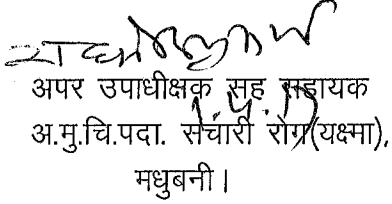 अपर उपाधीक्षक सह सहायक
अ.मु.चि.पदा. संचारी रोग(यक्ष्मा),
मधुबनी।